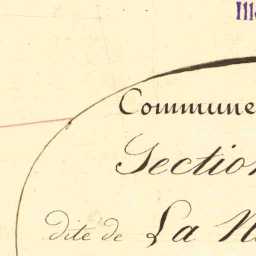 Ill
Commune
Section
dite de La N